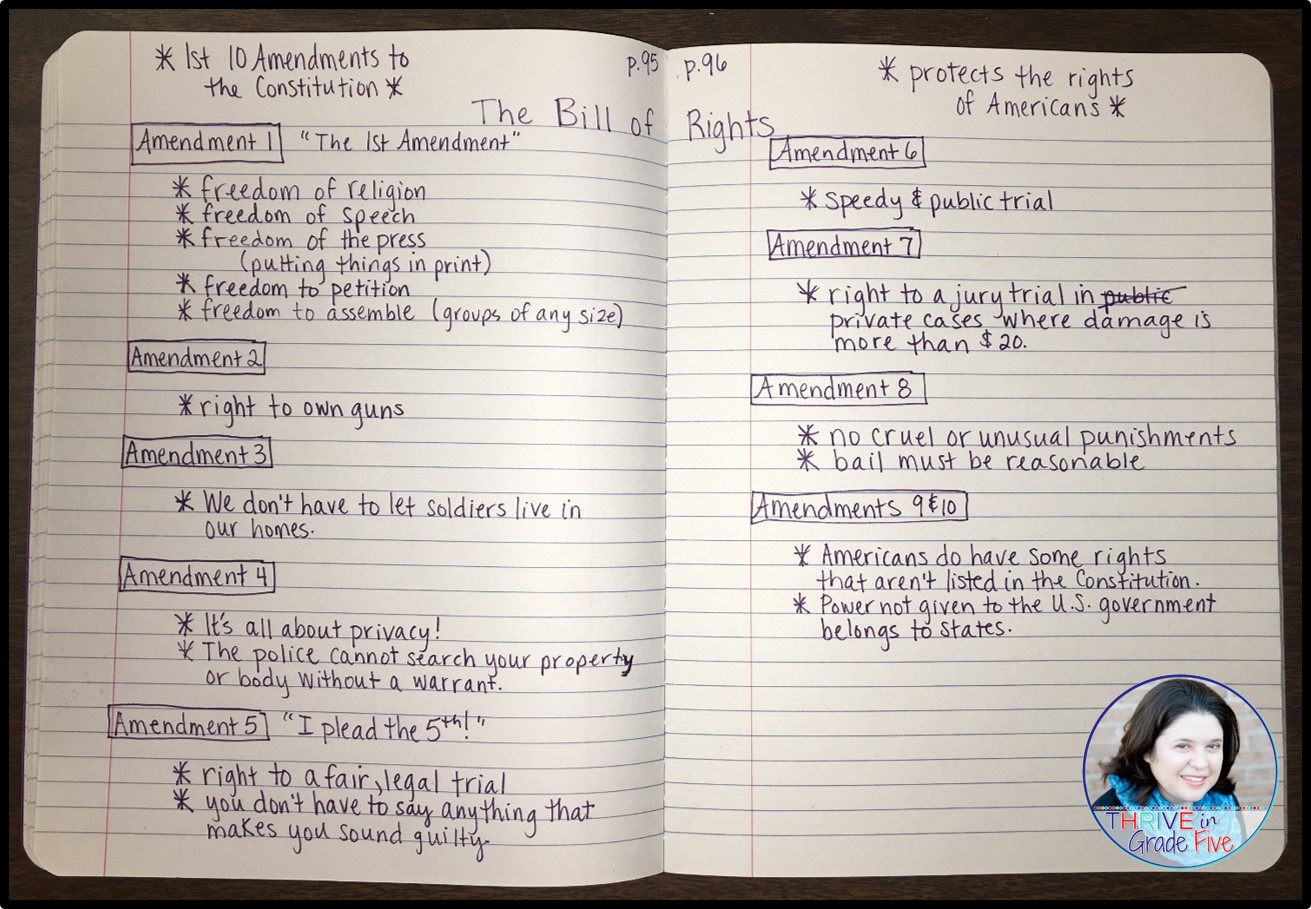 * 1st 10 Amendments to
the Constitution *
p.95
p.96
* protects the rights
of Americans *
The Bill of Rights
Amendment 1 "The 1st Amendment"
* freedom of religion
* freedom of speech
* freedom of the press
(putting things in print)
* freedom to petition
* freedom to assemble (groups of any size)
Amendment 2
* right to own guns
Amendment 3
* We don't have to let soldiers live in
our homes.
Amendment 4
* It's all about privacy!
* The police cannot search your property
or body without a warrant.
Amendment 5 "I plead the 5th!"
* right to a fair, legal trial
* you don't have to say anything that
makes you sound guilty.
Amendment 6
* speedy & public trial
Amendment 7
* right to a jury trial in public
private cases where damage is
more than $20.
Amendment 8
* no cruel or unusual punishments
* bail must be reasonable
Amendments 9 & 10
* Americans do have some rights
that aren't listed in the Constitution.
* Power not given to the U.S. government
belongs to states.
THRIVE in
Grade Five